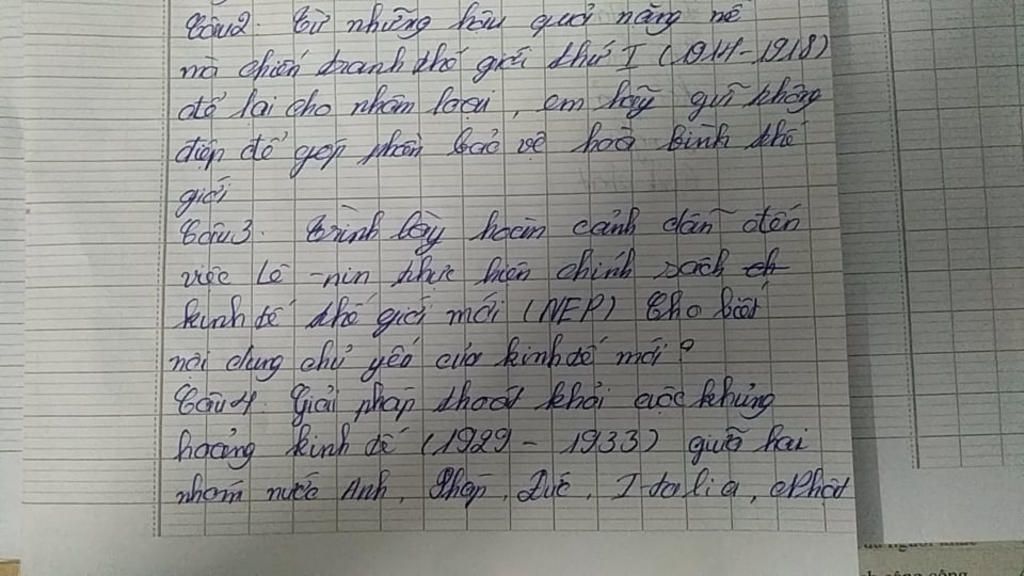 Câu 2. Từ những hậu quả nặng nề
mà chiến tranh thế giới thứ I (1914-1918)
để lại cho nhân loại, em hãy gửi thông
điệp để góp phần bảo vệ hoà bình thế
giới
Câu 3. Trình bày hoàn cảnh dẫn đến
việc Lê-nin thực hiện chính sách ch
kinh tế thế giới mới (NEP) Cho biết
nội dung chủ yếu của kinh tế mới?
Câu 4. Giải pháp thoát khỏi cuộc khủng
hoảng kinh tế (1929 - 1933) giữa hai
nhóm nước Anh, Pháp, Đức, Italia, Nhật